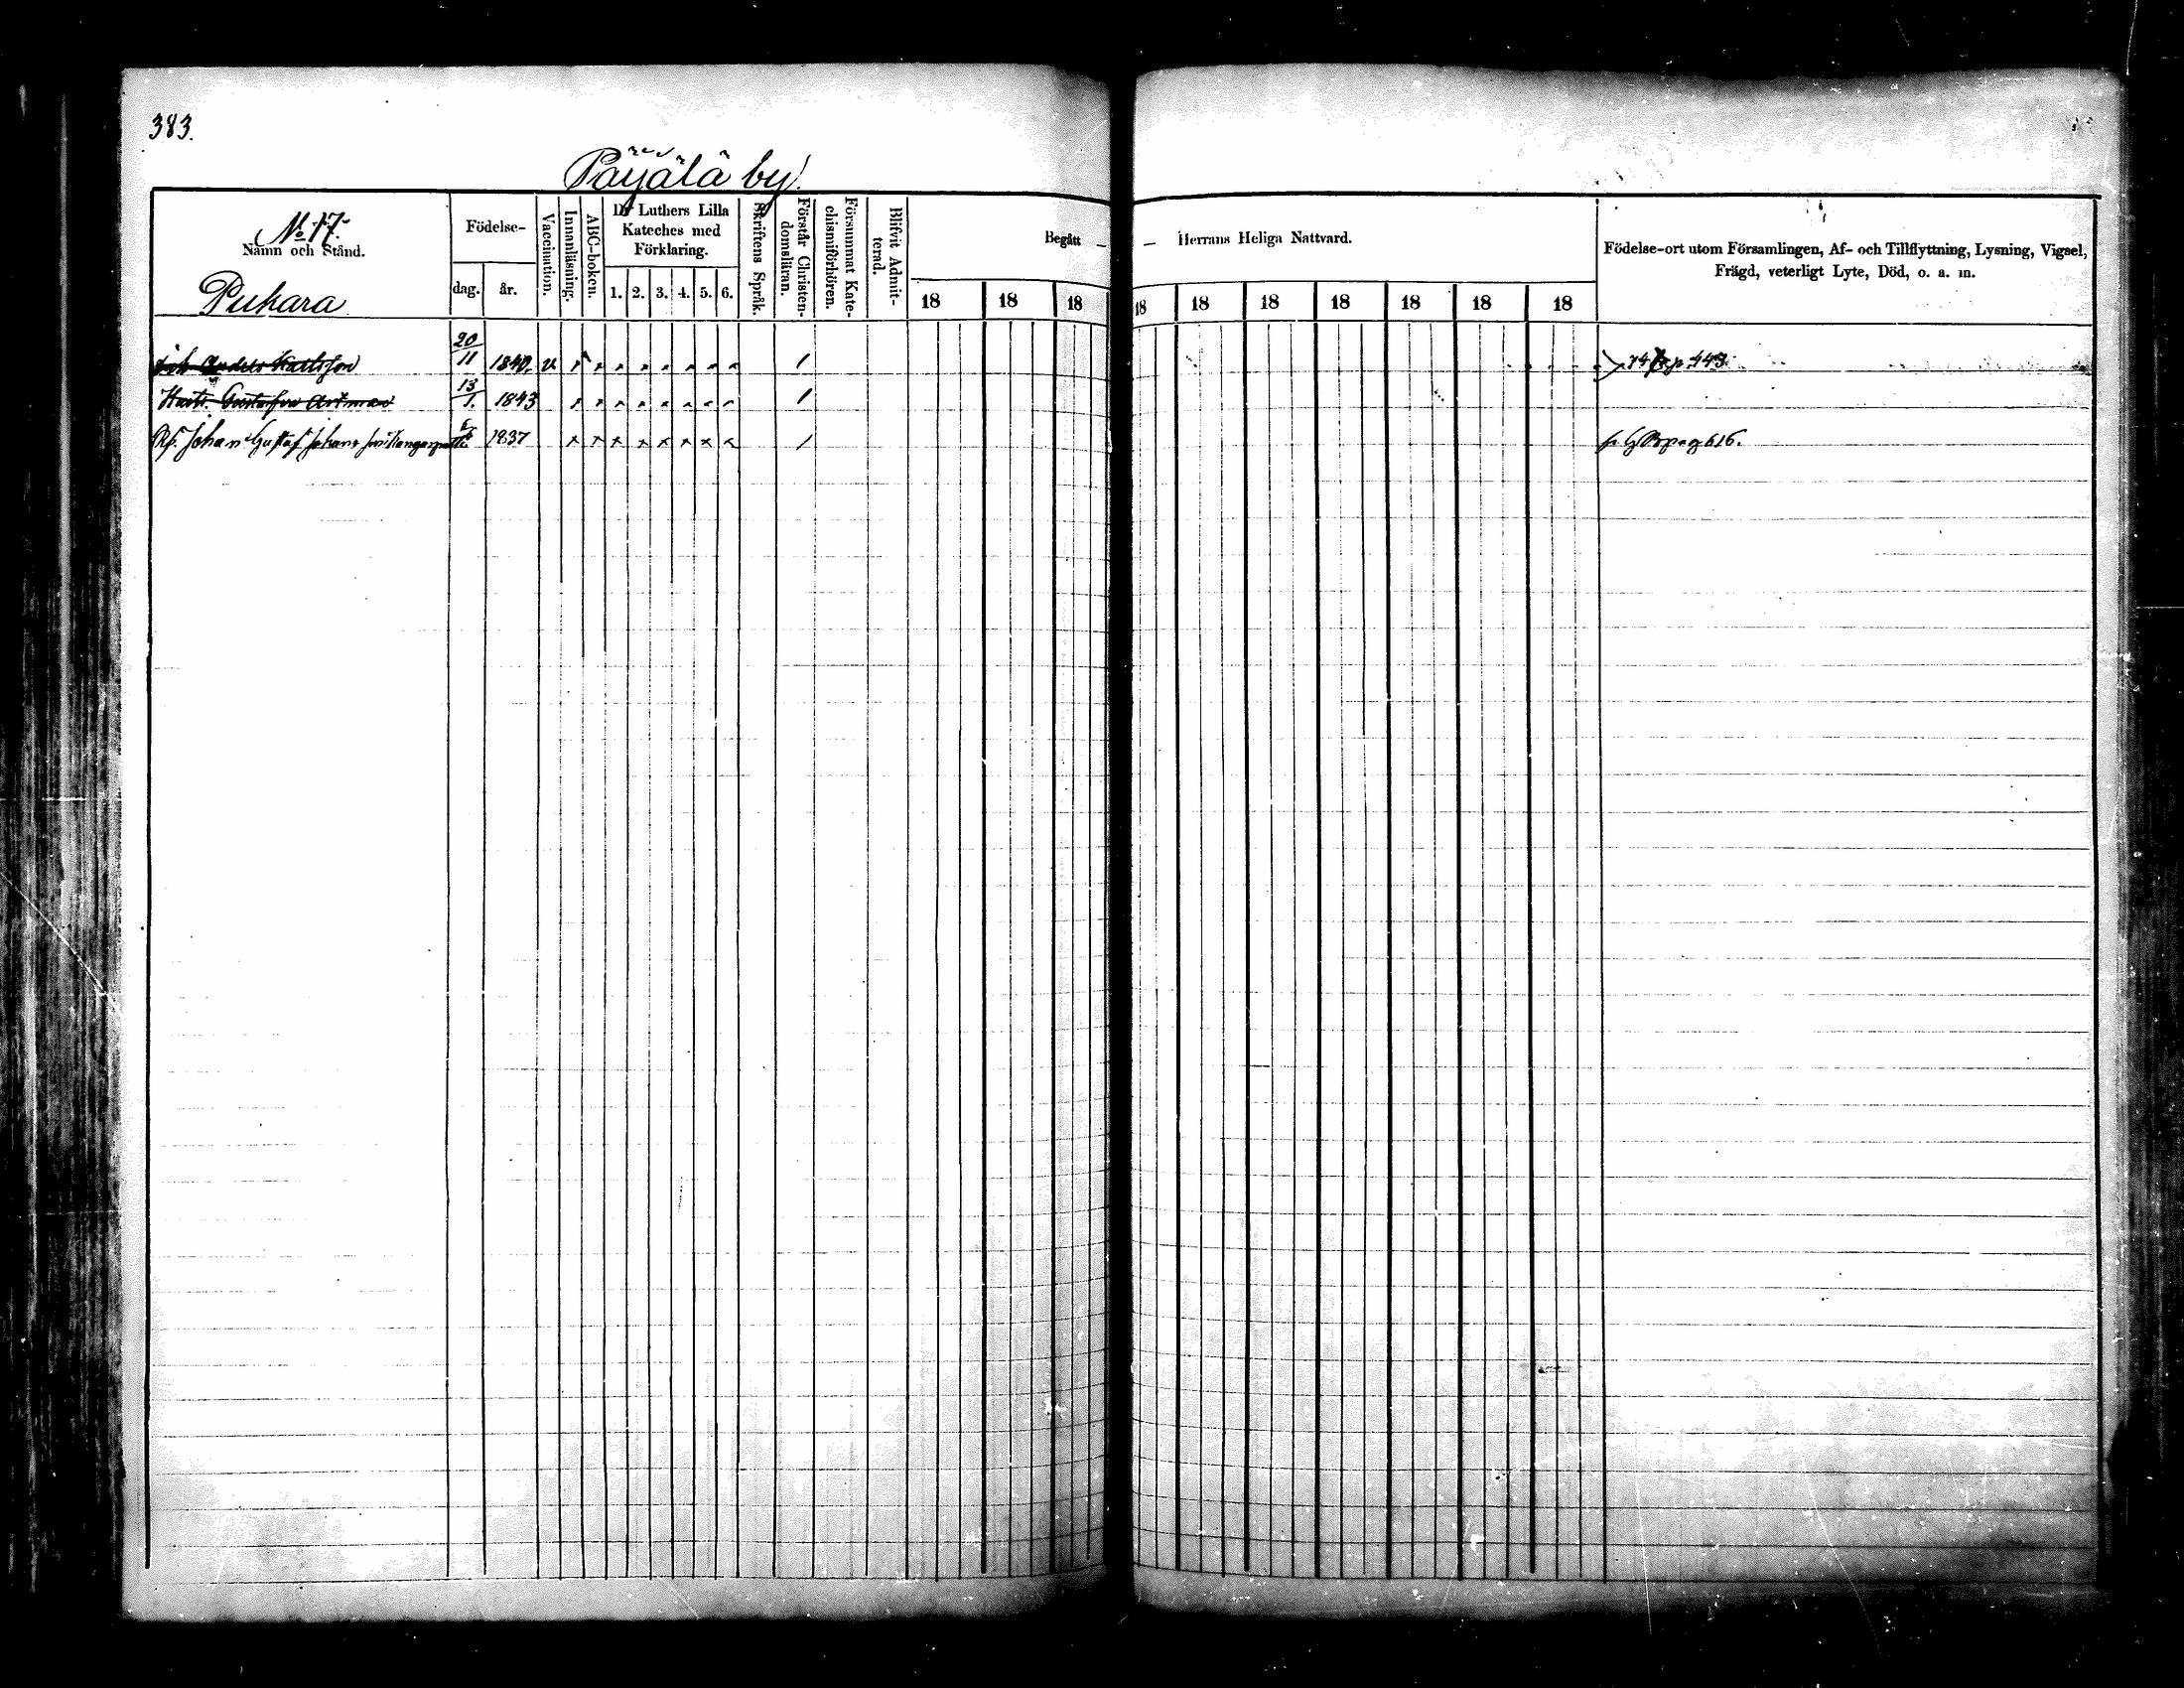 383.
Päÿälä by.
No 17.
Namn och Stånd.
Puhara
Födelse-
dag.
år.
Vaccination.
Innanläsning.
ABC-boken.
Dr Luthers Lilla
Kateches med
Förklaring.
1. 2. 3. 4. 5. 6.
Skriftens Språk.
Förstår Christen-
domsläran.
Försummat Kate-
chismiförhören.
Blifvit Admit-
terad.
Begått —
18 18 18
— Herrans Heliga Nattvard.
18 18 18 18 18 18 18
Födelse-ort utom Församlingen, Af- och Tillflyttning, Lysning, Vigsel,
Frägd, veterligt Lyte, Död, o. a. m.
Anders Karlsson 20/11 1840. v
Hust. Gustafva 13/1. 1843
Johan Gustaf Johansson 1837
pag 616.